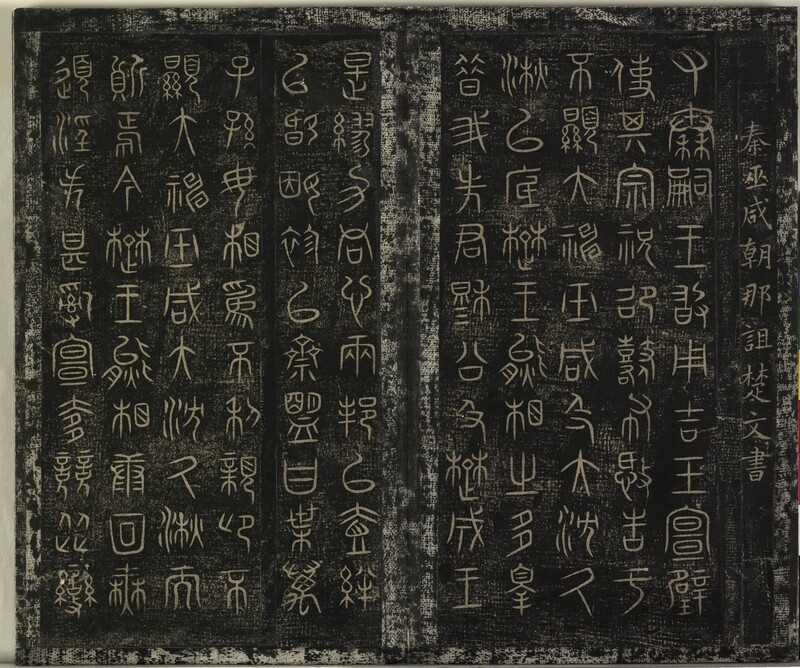 秦巫咸朝那詛楚文書
又秦嗣王敢用吉玉宣璧
使其宗祝邵鼛布憼告于
不顯大神巫咸及大沈久
湫以底楚王熊相之多辠
昔我先君穆公及楚成王
是繆力同心兩邦以壹絆
以婚姻袗以齋盟曰葉萬
子孫毋相為不利親卬不
顯大神巫咸大沈久湫而
質焉今楚王熊相康回無
道淫失甚亂宣奓競從變